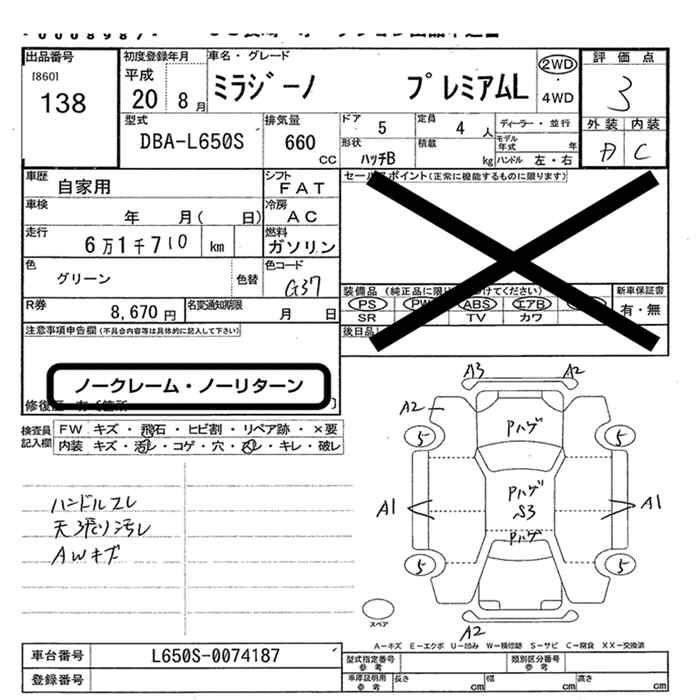 出品番号
[860]
138
初度登録年月
平成
20 8月
車名・グレード
ミラジーノ プレミアムL
2WD
・
4WD
評価点
3
外装 内装
A C
型式
DBA-L650S
排気量
660
CC
ドア
5
定員
4 人
ディーラー・並行
モデル年式 年
形状
ハッチB
積載
kg
ハンドル 左・右
車歴
自家用
シフト
FAT
車検
年 月( 日)
冷房
AC
走行
6万1千710 km
燃料
ガソリン
色
グリーン
色替
色コード
G37
R券
8,670 円
名変通知期限
月 日
セールスポイント(正常に機能するものに限ります)
装備品
PS PW ABS エアB
SR TV カワ
新車保証書
有・無
後日品
注意事項申告欄(不具合内容等は具体的に記入して下さい)
ノークレーム・ノーリターン
検査員
記入欄
FW キズ・飛石・ヒビ割・リペア跡・×要
内装 キズ・汚レ・コゲ・穴・スレ・キレ・破レ
ハンドルスレ
天張り汚レ
AWキズ
A3 A2
A2
Pハゲ
5 5
Pハゲ
S3
A1 A1
Pハゲ
5 5
スペア
A2
A-キズ E-エクボ U-凹み W-補修跡 S-サビ C-腐食 XX-交換済
車台番号
L650S-0074187
登録番号
型式指定番号
参考
類別区分番号
参考
車庫証明用
参考
長さ cm
幅 cm
高さ cm